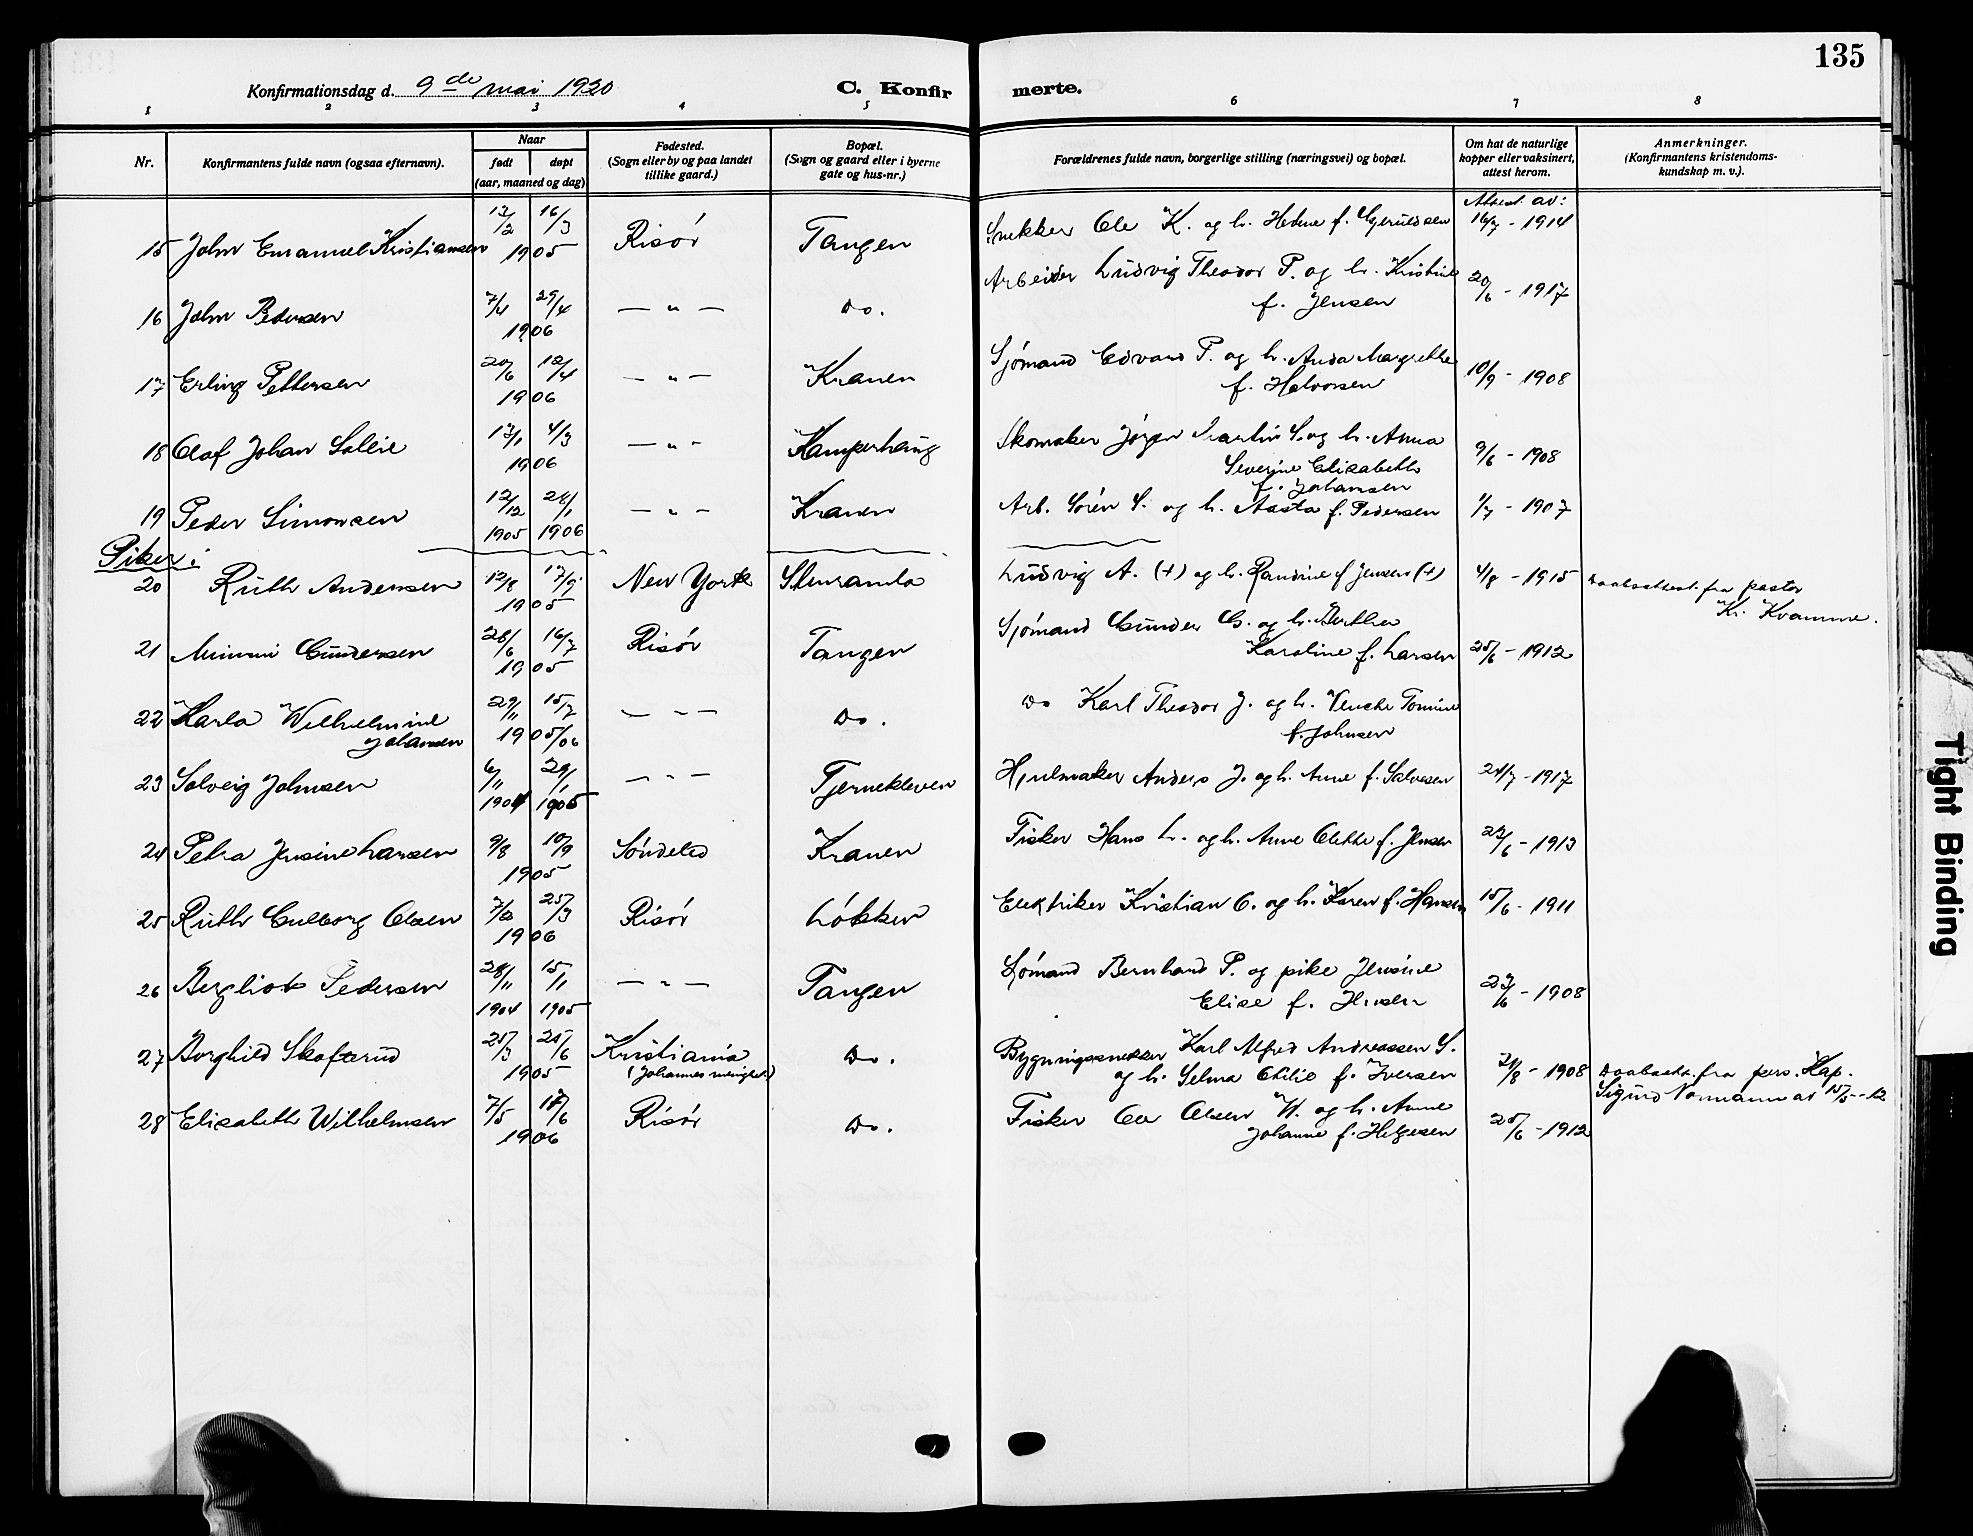 135
Konfirmationsdag d. 9de mai 1920
C. Konfirmerte.
1 2 3 4 5 6 7 8
Nr.
Konfirmantens fulde navn (ogsaa efternavn).
Naar
født døpt
(aar, maaned og dag)
Fødested.
(Sogn eller by og paa landet
tillike gaard.)
Bopæl.
(Sogn og gaard eller i byerne
gate og hus-nr.)
Forældrenes fulde navn, borgerlige stilling (næringsvei) og bopæl.
Om hat de naturlige
kopper eller vaksinert,
attest herom.
Anmerkninger.
(Konfirmantens kristendoms-
kundskap m. v.).
Attest av:
15 John Emanuel Kristiansen 16/3 1905 Risör Tangen Snekker Ole K. og h. Helene f. 1914
16 John Pedersen 7/4 29/4 1906 — " — Do. Arbeider Ludvig Theodor P. og h. Kristine
f. Jensen 20/6 - 1917
17 Erling Pettersen 20/6 12/4 1906 — " — Kranen Sjömand Edvard P. og h. Anda Margrethe
f. Halvorsen 10/9 - 1908
18 Olaf Johan Sollie 4/3 1906 — " — Kamperhaug Skomaker Jörgen Martin S. og h. Anna
Severine Elisabeth
f. Johansen 9/6 - 1908
19 Peder Simonsen 12/12 1905 28/1 1906 — " — Kranen Arb. Sören S. og h. Aasta f. Pedersen 1/7 - 1907
Piker:
20 Ruth Andersen 12/8 17/9 1905 New York Sturanla Ludvig A. (+) og h. Randine f. Jensen (+) 4/8 - 1915 Daabsattest fra pastor
Kr. Kvamme.
21 Mimmi Gundersen 28/6 16/7 1905 Risör Tangen Sjömand Gunder G. og h. Berthe
Karoline f. Larsen 25/6 - 1912
22 Karla Wilhelmine
Johansen 29/11 15/7 1905/06 — " — Do. Do Karl Theodor J. og h. Wenche Tomine
f. Johnsen
23 Solveig Johnsen 6/11 1904 29/1 1905 — " — Tjernekleven Hjulmaker Anders J. og h. Anne f. Salvesen 24/7 - 1917
24 Petra Jensine Larsen 9/8 10/9 1905 Söndeled Kranen Fisker Hans L. og h. Anne Olette f. Jensen 1913
25 Ruth Gulborg Olsen 25/3 1906 Risör Lökken Elektriker Kristian O. og h. Karen f. Hansen 15/6 - 1911
26 Bergliot Pedersen 28/11 1904 15/1 1905 — " — Tangen Sömand Bernhard P. og pike Jensine
Elise f. Jensen 23/6 - 1908
27 Borghild Skofterud 25/3 25/6 1905 Kristiania
(Johannes menighet) Do. Bygningssnekker Karl Alfred Andreassen S.
og h. Selma Otilie f. Iversen 21/8 - 1908 Daabsatt. fra pers. Kap.
Sigurd Normann av 15/5 - 12
28 Elisabeth Wilhelmsen 7/5 17/6 1906 Risör Do. Fisker Ole Olsen W. og h. Anne
Johanne f. Helgesen 25/6 - 1912
Tight Binding